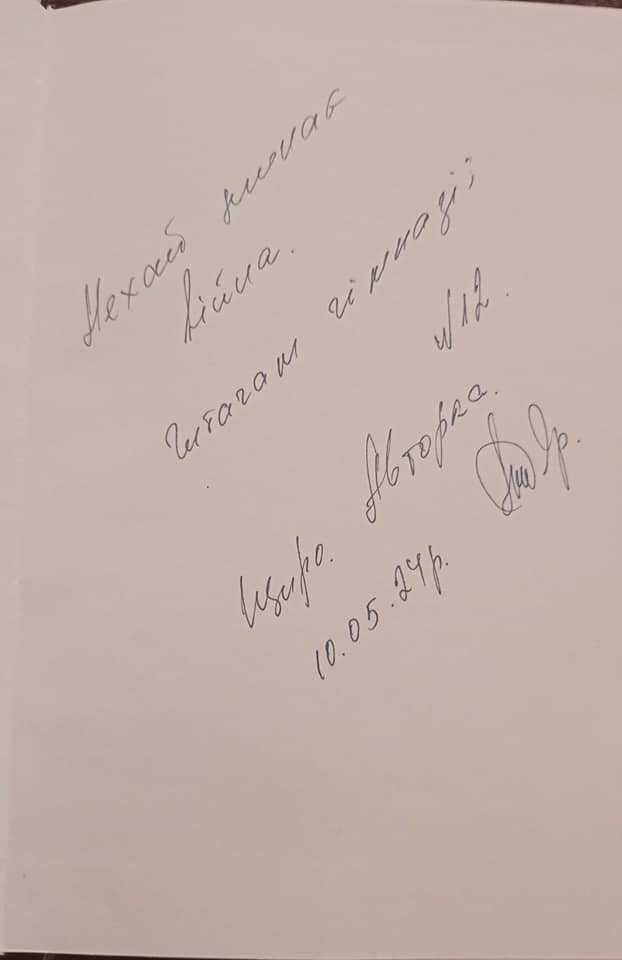 Нехай
війна.
Читачам гімназії
№12.
Щиро. Авторка.
10.05.24р.